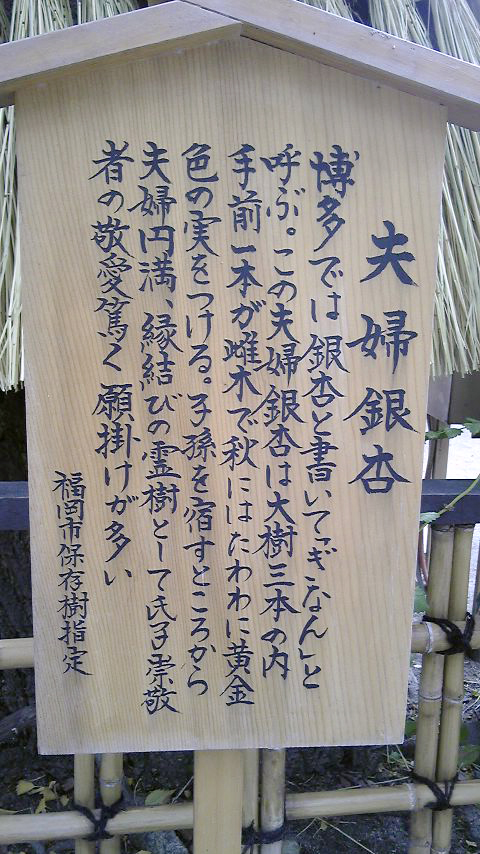 夫婦銀杏
博多では銀杏と書いて「ぎなん」と
呼ぶ。この夫婦銀杏は大樹三本の内
手前一本が雌木で秋にはたわわに黄金
色の実をつける。子孫を宿すところから
夫婦円満、縁結びの霊樹として氏子崇敬
者の敬愛篤く願掛けが多い
福岡市保存樹指定